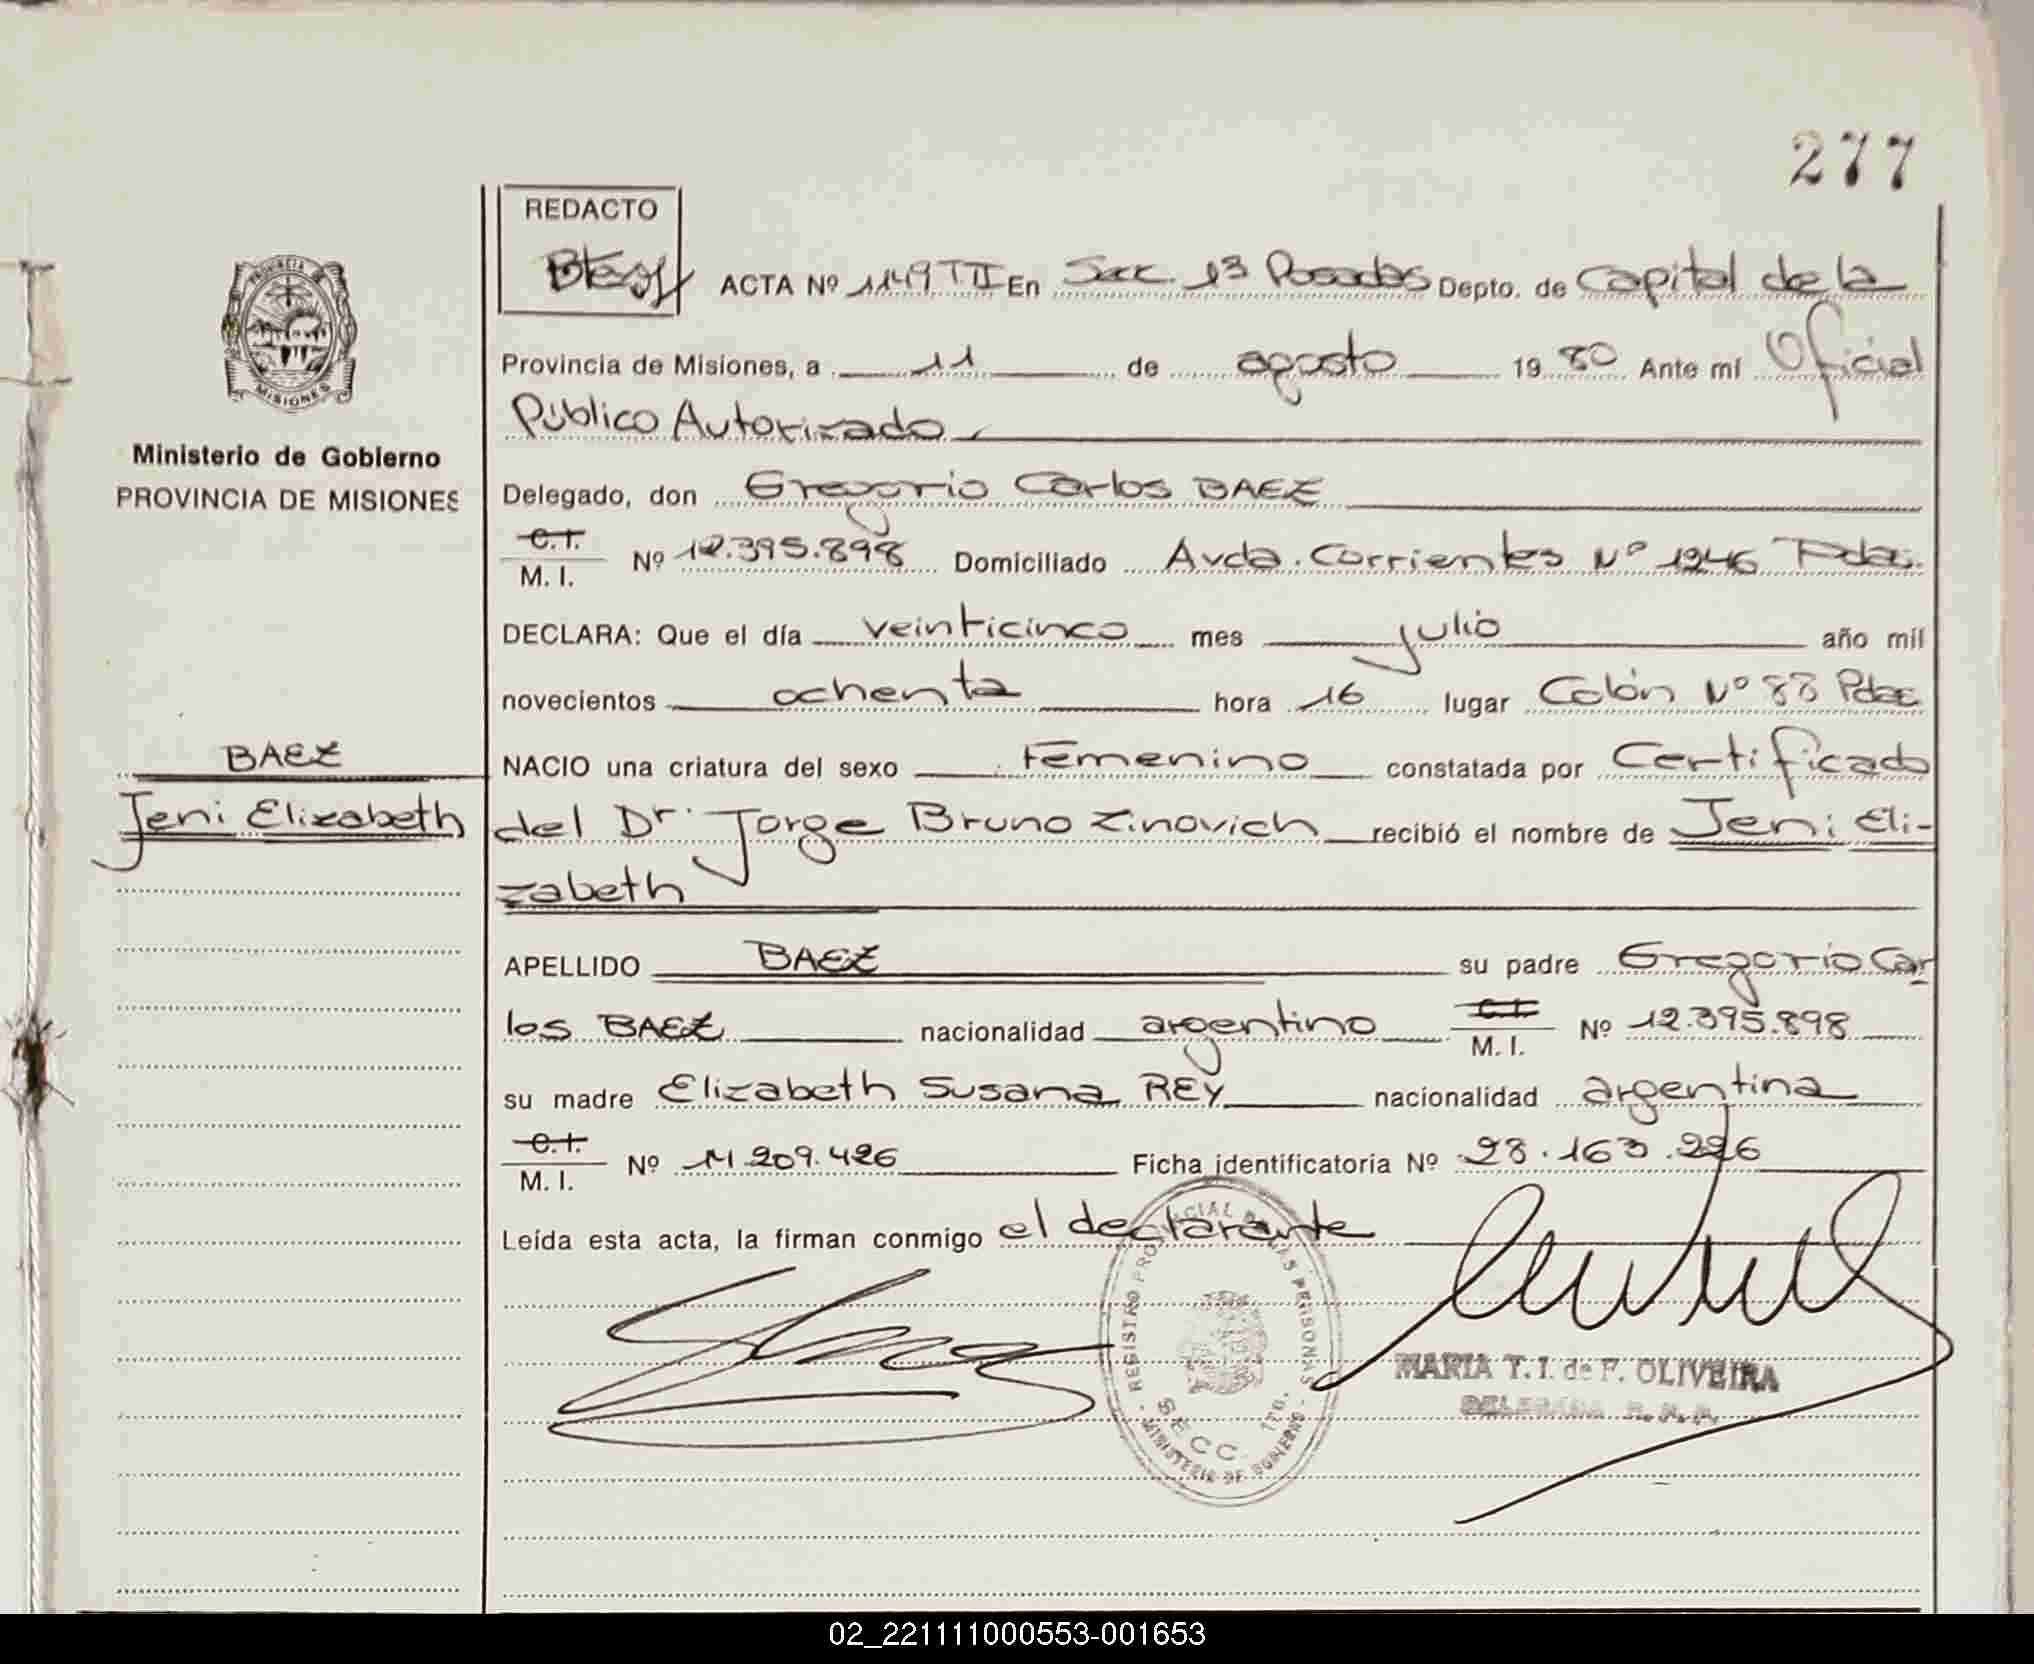 277
REDACTO
ACTA Nº 1149 TII En Secc. 13 Posadas Depto. de Capital de la
Provincia de Misiones, a 11 de agosto 1980 Ante mí Oficial
Público Autorizado
Delegado, don Gregorio Carlos BAEZ
C.I.
M. I. Nº 12.395.898 Domiciliado Avda. Corrientes Nº 1246 Pdas.
DECLARA: Que el día veinticinco mes julio año mil
novecientos ochenta hora 16 lugar Colón Nº 88 Pdas
NACIO una criatura del sexo Femenino constatada por Certificado
del Dr. Jorge Bruno Zinovich recibió el nombre de Jeni Eli-
zabeth
APELLIDO BAEZ su padre Gregorio Car
los BAEZ nacionalidad argentino C.I. M. I. Nº 12.395.898
su madre Elizabeth Susana REY nacionalidad argentina
C.I.
M. I. Nº 11.209.426 Ficha identificatoria Nº 28.163.226
Leída esta acta, la firman conmigo el declarante
PROVINCIA DE
MISIONES
Ministerio de Gobierno
PROVINCIA DE MISIONES
BAEZ
Jeni Elizabeth
REGISTRO PROVINCIAL DE LAS PERSONAS
SECC.
MINISTERIO DE GOBIERNO
MARIA T. I. de F. OLIVEIRA
DELEGADA R. P. P.
02_221111000553-001653